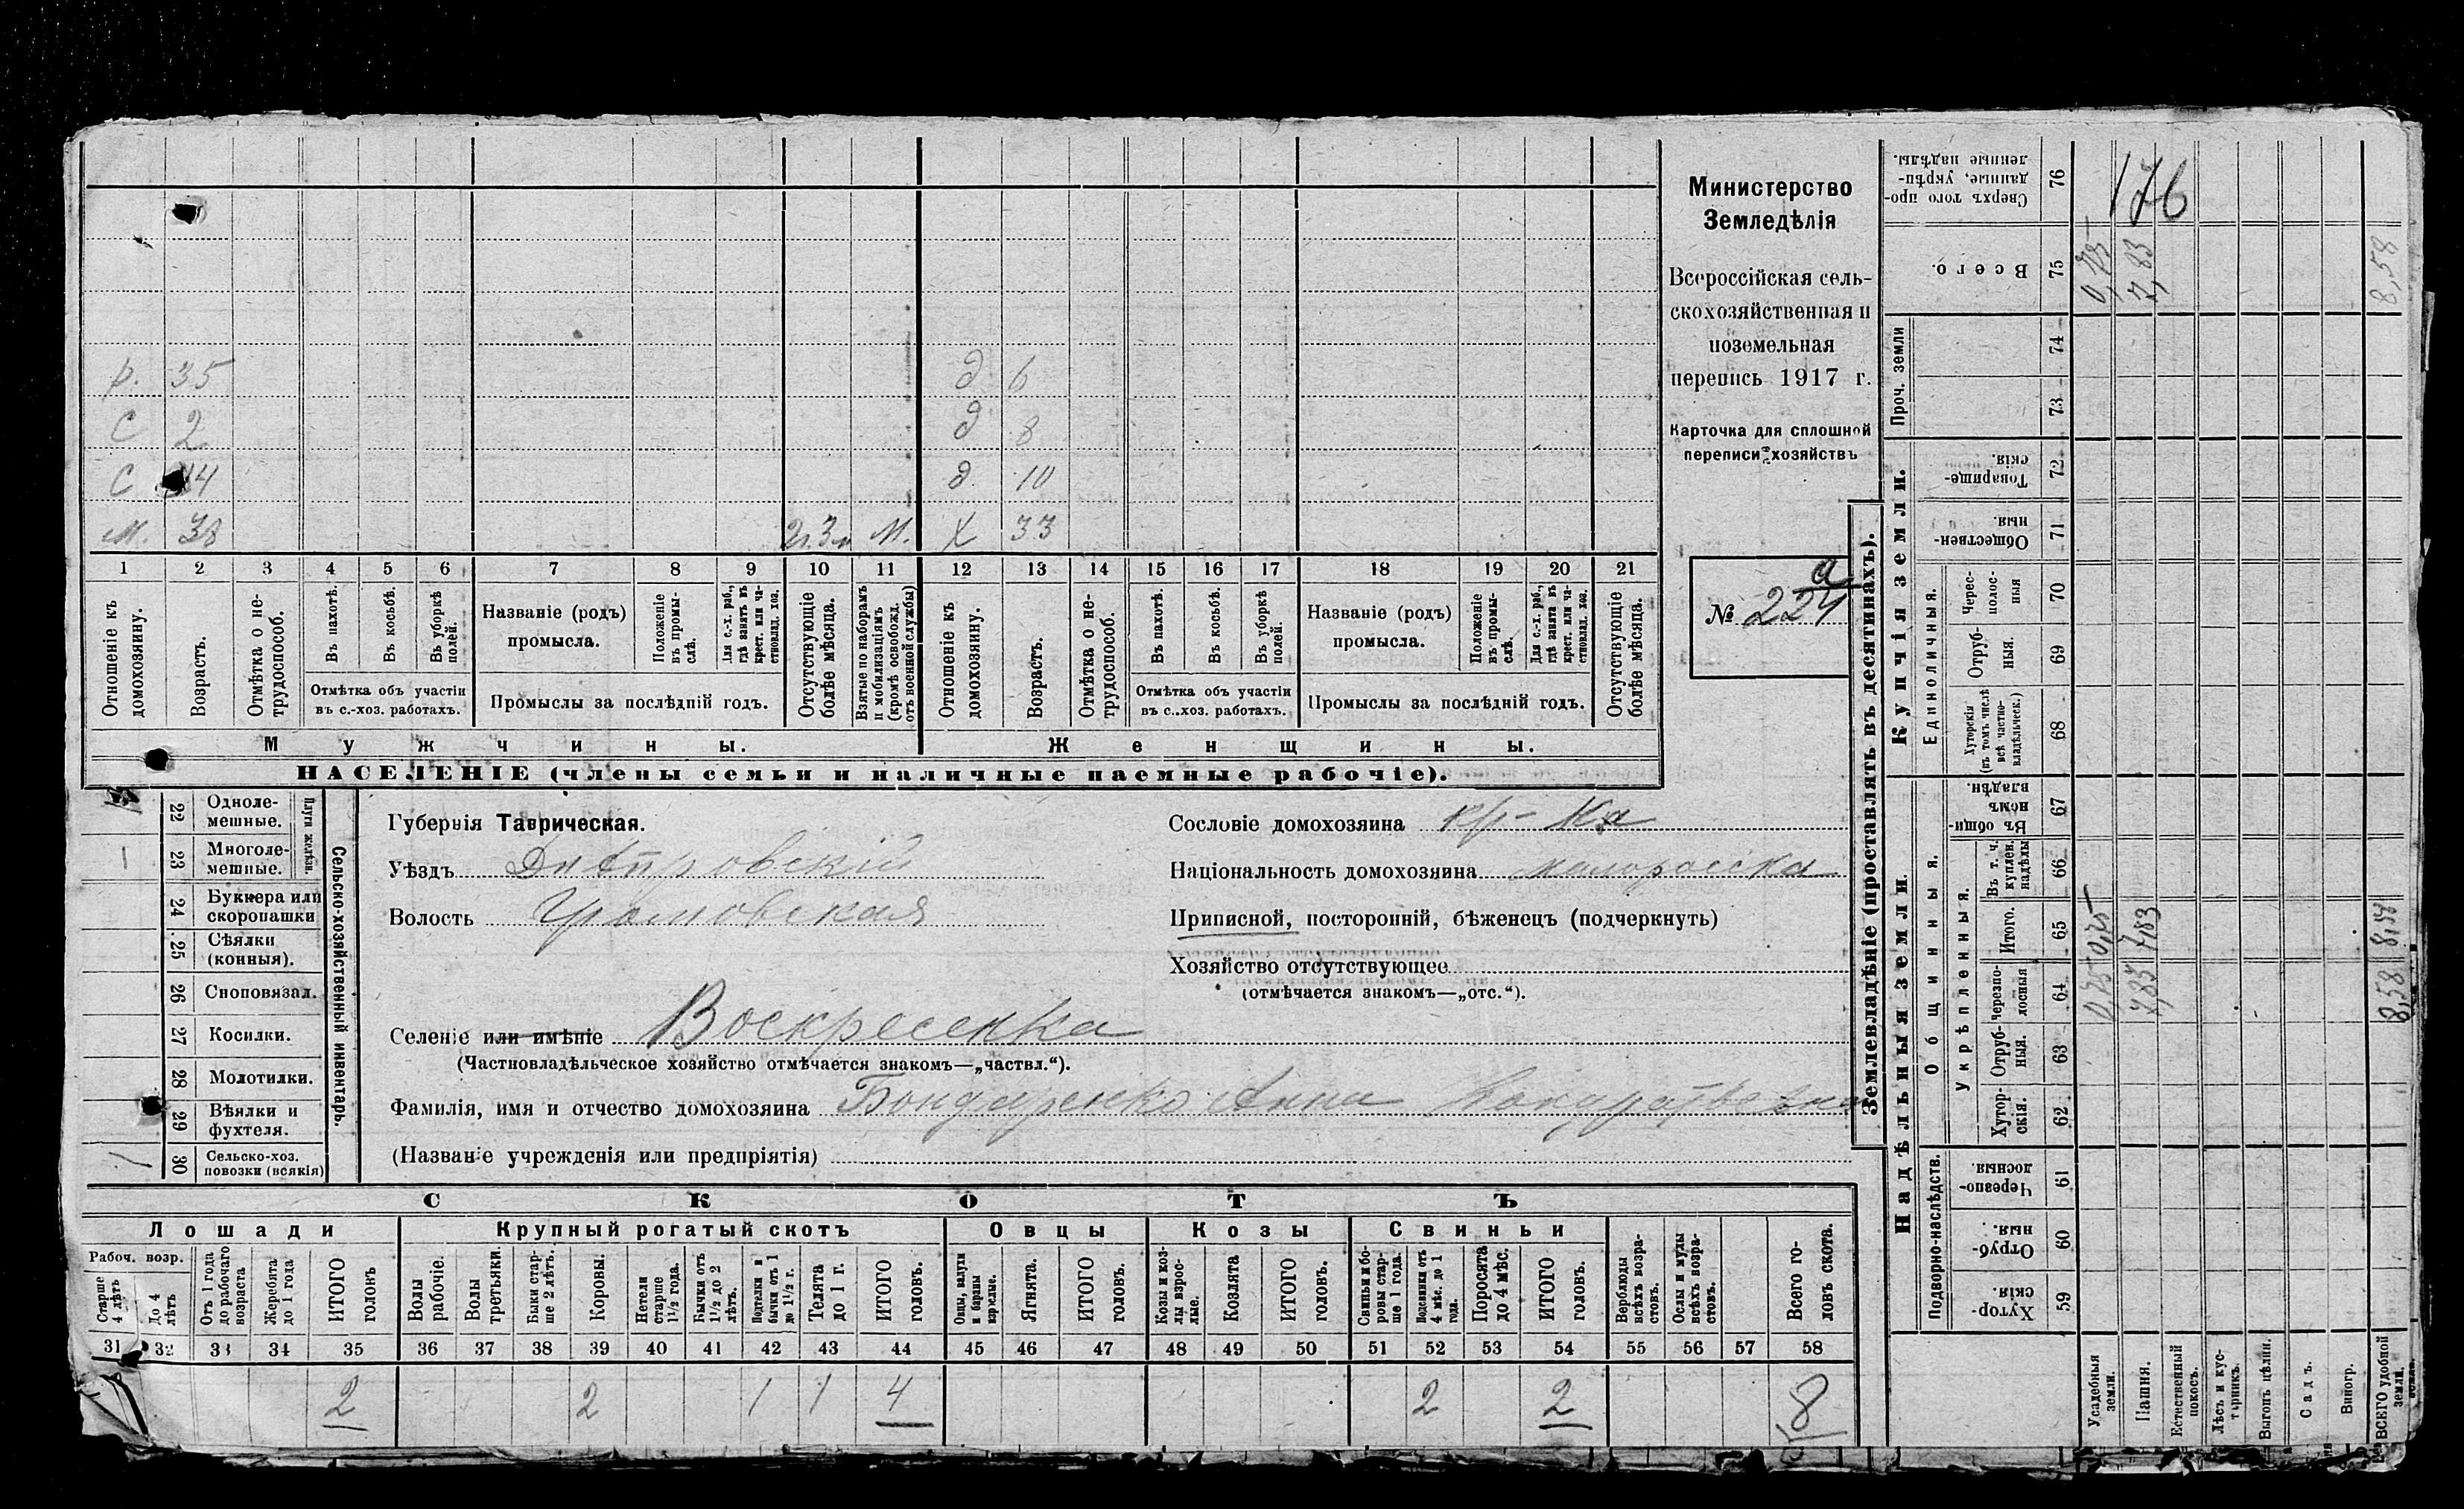 р. 35 д 6
С 2 д 8
С 14 д. 10
М. 38 2г. 3м М. Х 33
1 2 3 4 5 6 7 8 9 10 11 12 13 14 15 16 17 18 19 20 21
Отношеніе къ домохозяину.
Возрастъ.
Отмѣтка о не-
трудоспособ.
Въ пахотѣ.
Въ косьбѣ.
Въ уборкѣ полей.
Отмѣтка объ участіи
въ с.-хоз. работахъ.
Названіе (родъ)
промысла.
Положеніе въ промы-
слѣ.
Для с.-х. раб., гдѣ занятъ въ крест. или ча-
стновлад. хоз.
Промыслы за послѣдній годъ.
Отсутствующіе болѣе мѣсяца.
Взятые по наборамъ и мобилизаціямъ (кромѣ освобожд. отъ военной службы)
Отношеніе къ домохозяину.
Возрастъ.
Отмѣтка о не-
трудоспособ.
Въ пахотѣ.
Въ косьбѣ.
Въ уборкѣ полей.
Отмѣтка объ участіи
въ с..хоз. работахъ.
Названіе (родъ)
промысла.
Положеніе въ промы-
слѣ.
Для с.-х. раб., гдѣ занята въ крест. или ча-
стновлад. хоз.
Промыслы за послѣдній годъ.
Отсутствующіе болѣе мѣсяца.
Мужчины. Женщины.
НАСЕЛЕНІЕ (члены семьи и наличные наемные рабочіе).
Министерство
Земледѣлія
Всероссійская сель-
скохозяйственная и
поземельная
перепись 1917 г.
Карточка для сплошной
переписи хозяйствъ
№ 224 а
22 Одноле-
мешные.
Плуги желѣзн.
1 23 Многоле-
мешные.
24 Буккера или
скоропашки
25 Сѣялки
(конныя).
26 Сноповязал.
27 Косилки.
28 Молотилки.
29 Вѣялки и
фухтеля.
1 30 Сельско-хоз.
повозки (всякія)
Сельско-хозяйственный инвентарь.
Губернія Таврическая.
Уѣздъ Днѣпровскій
Волость Громовская
Селеніе или имѣніе Воскресенка
(Частновладѣльческое хозяйство отмѣчается знакомъ—„частвл.“).
Фамилія, имя и отчество домохозяина Бондаренко Анна Кондратьевна
(Названіе учрежденія или предпріятія)
Сословіе домохозяина кр-ка
Національность домохозяина малоросска
Приписной, посторонній, бѣженецъ (подчеркнуть)
Хозяйство отсутствующее
(отмѣчается знакомъ—„отс.“).
СКОТЪ
Лошади Крупный рогатый скотъ Овцы Козы Свиньи
Рабоч. возр.
Старше 4 лѣтъ
До 4 лѣтъ
Отъ 1 года до рабочаго возраста
Жеребята до 1 года
ИТОГО головъ
Волы рабочіе.
Волы третьяки.
Быки стар-
ше 2 лѣтъ.
Коровы.
Нетели старше 1½ года.
Бычки отъ 1½ до 2 лѣтъ.
Подтелки и бычки отъ 1 до 1½ г.
Телята до 1 г.
ИТОГО головъ.
Овцы, валухи и бараны взрослые.
Ягнята.
ИТОГО головъ.
Козы и коз-
лы взрос-
лые.
Козлята
ИТОГО головъ.
Свиньи и бо-
ровы стар-
ше 1 года.
Подсвинки отъ 4 мѣс. до 1 года.
Поросята до 4 мѣс.
ИТОГО головъ.
Верблюды всѣхъ возра-
стовъ.
Ослы и мулы всѣхъ возра-
стовъ.
Всего го-
ловъ скота.
31 32 33 34 35 36 37 38 39 40 41 42 43 44 45 46 47 48 49 50 51 52 53 54 55 56 57 58
2 2 1 1 4 2 2 8
Землевладѣніе (проставлять въ десятинахъ).
Сверхъ того про-
данные, укрѣп-
ленные надѣлы.
76
176
Всего. 75 0,75 7,83 8,58
Проч. земли
74
73
Купчія земли.
Товарище-
скія.
72
Обществен-
ныя.
71
Единоличныя.
Черес-
полос-
ныя
70
Отруб-
ныя.
69
Хуторскія
(въ томъ числѣ
всѣ частно-
владѣльческ.)
68
Надѣльныя земли.
Общинныя.
Въ общи
номъ
владѣн.
67
Укрѣпленныя.
Въ т. ч.
куплен.
надѣлы
66
Итого. 65 0,75 7,83 8,58
черезпо-
лосныя
64 0,75 7,83 8,58
Отруб-
ныя.
63
Хутор-
скія.
62
Подворно-наслѣдств.
Черезпо-
лосныя.
61
Отруб-
ныя.
60
Хутор-
скія.
59
Усадебныя земли.
Пашня.
Естественный покосъ.
Лѣсъ и кус-
тарникъ.
Выгонъ цѣлин.
Садъ.
Виногр.
ВСЕГО удобной земли.